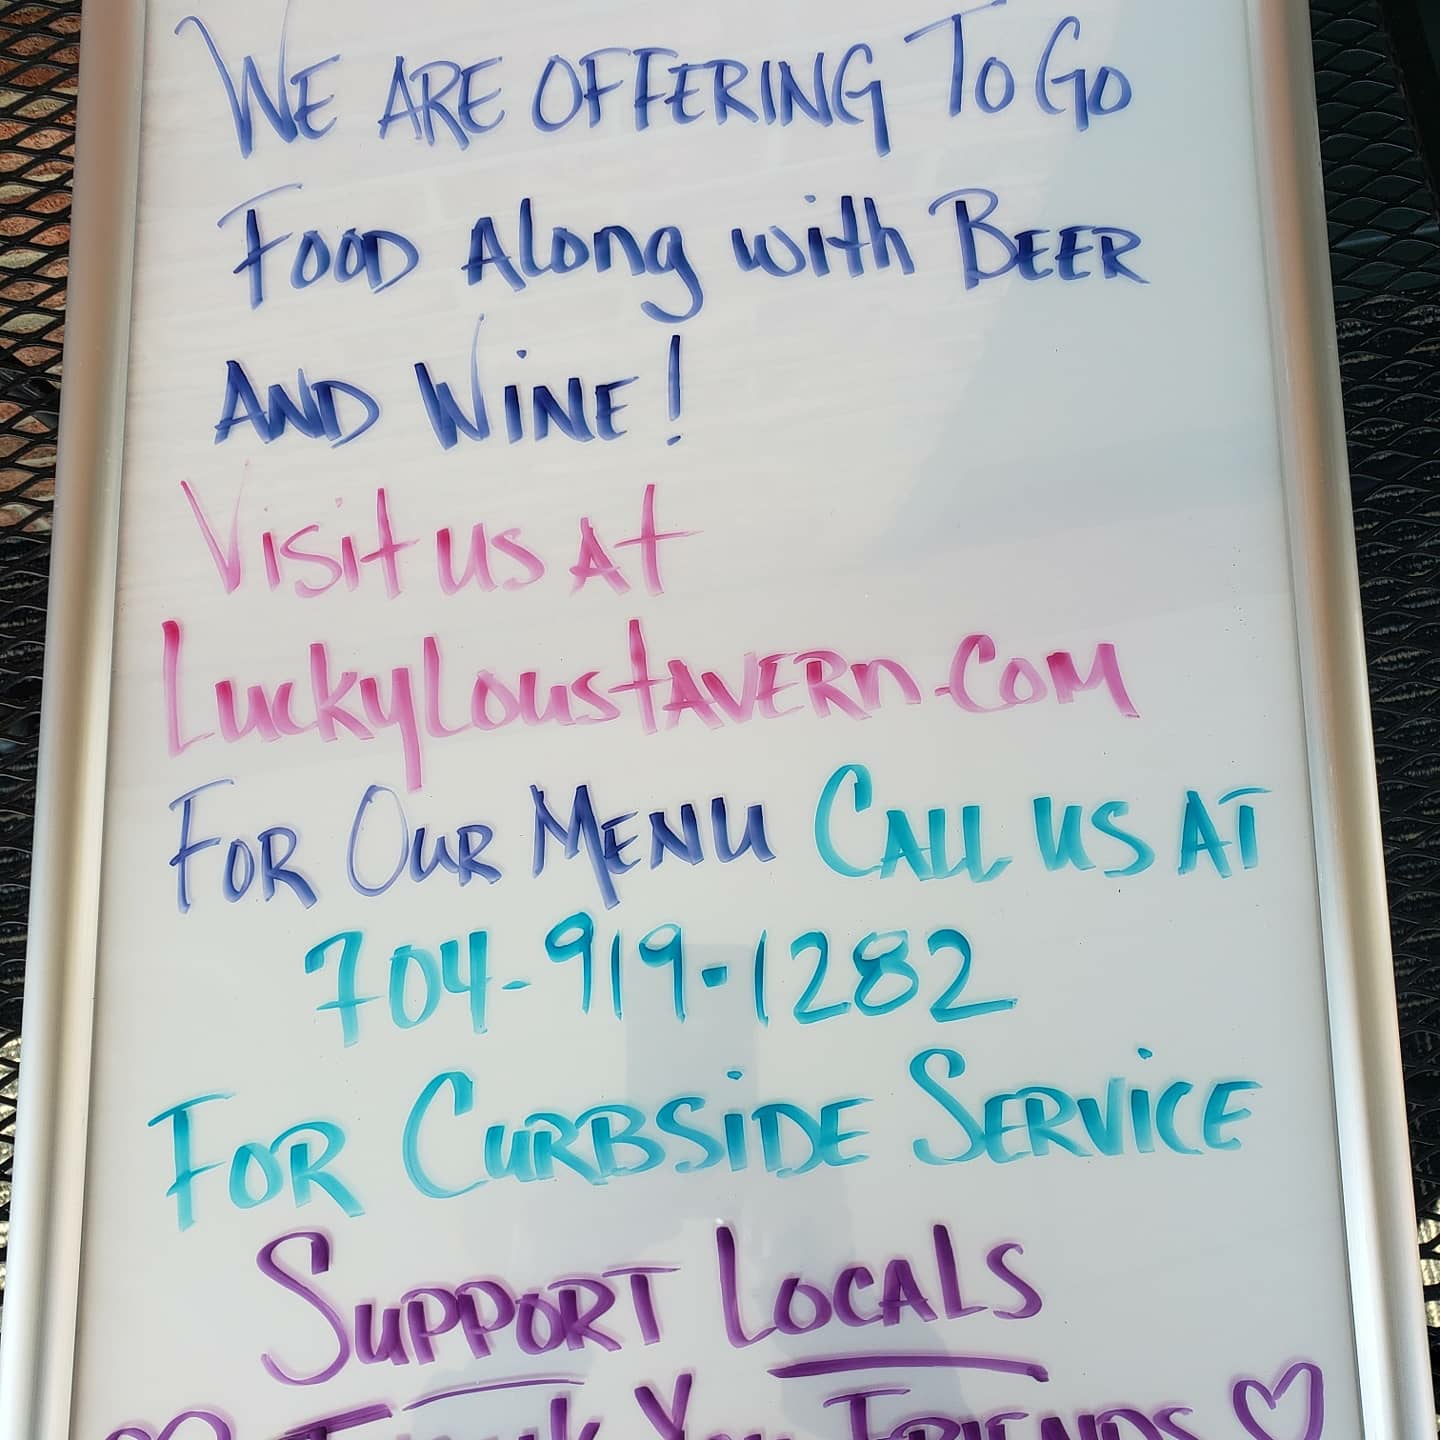 WE ARE OFFERING TO GO
FOOD Along with BEER
AND WiNE!
Visit us At
LuckyLoustAVERn.COM
FOR OUR MENU CALL US AT
704-919-1282
FOR CURBSiDE SERViCE
SUPPORT LOCALS
THANK YOU FRIENDS